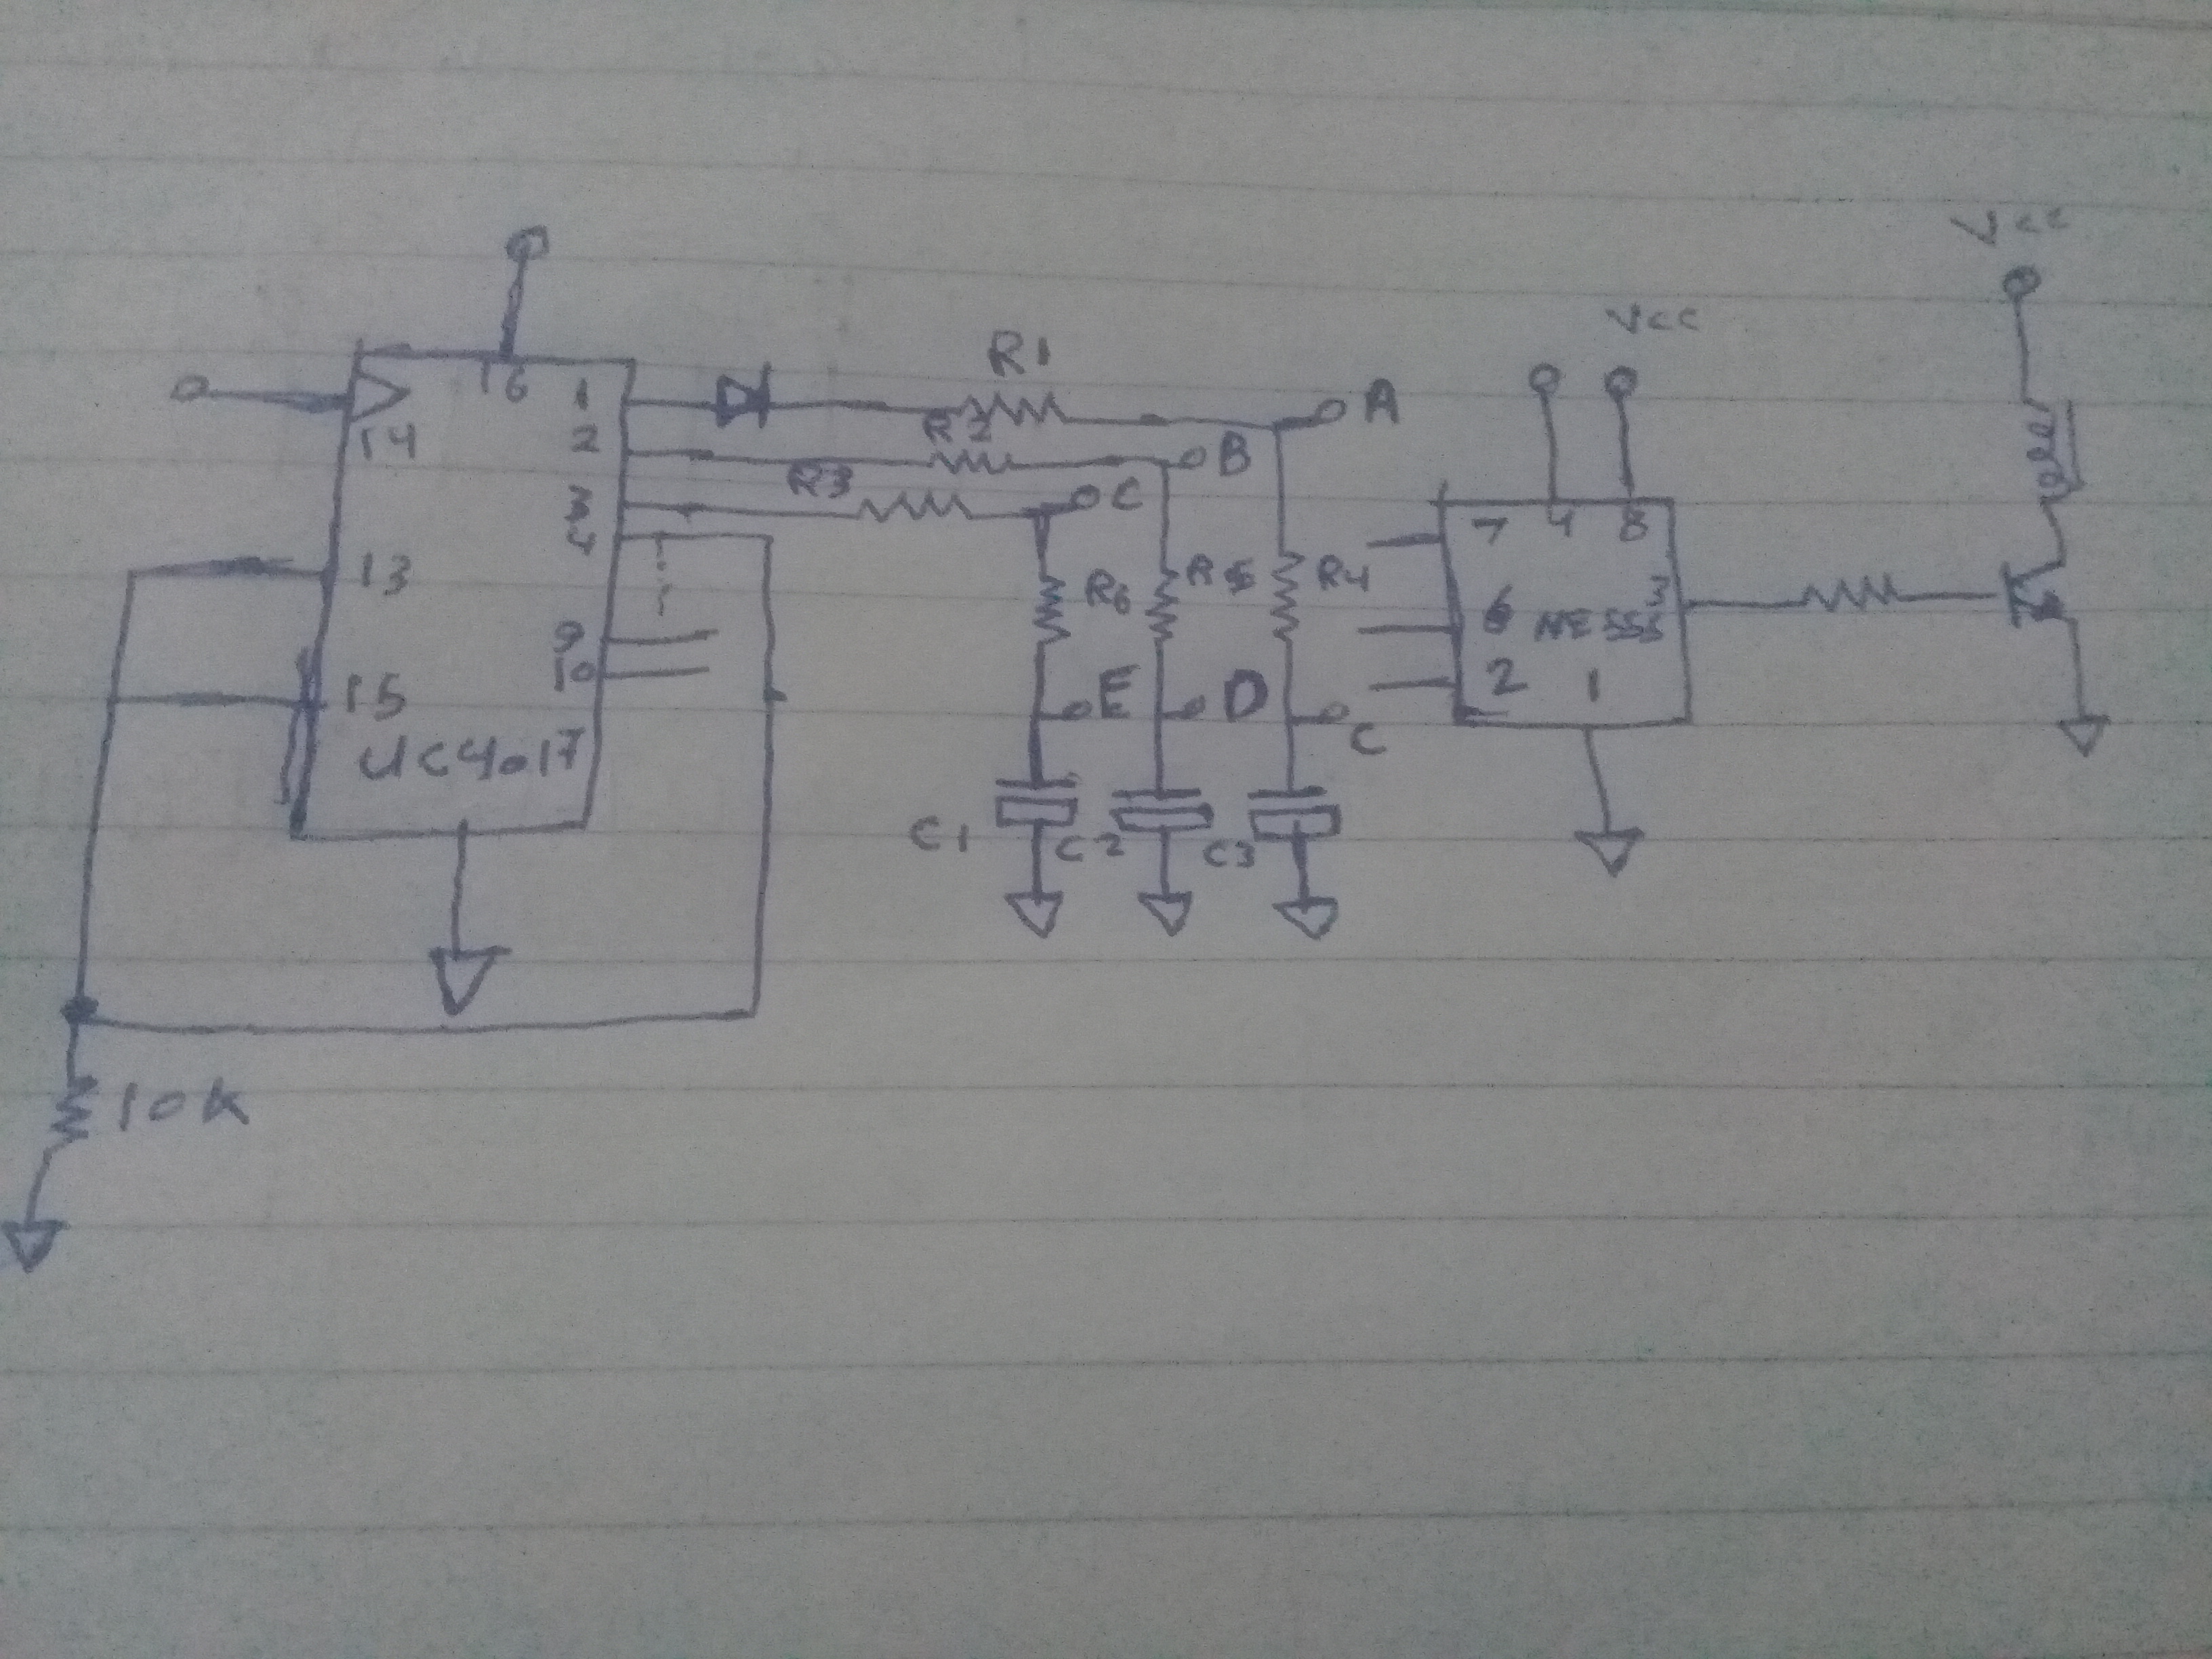 Vcc
Vcc
R1
16
1
A
14
2
R2
B
R3
3
C
4
7
4
8
13
R6
R5
R4
6
NE555
3
9
10
15
E
D
C
2
1
UC4017
C1
C2
C3
10K